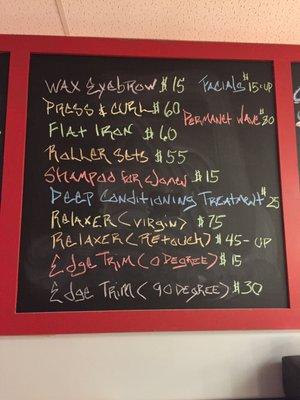 WAX EYEBROW $15
FACIALS $15-UP
PRESS & CURL $60
PERMANET WAVE $80
FLAT IRON $60
ROLLER SETS $55
SHAMPOO FOR WOMEN $15
DEEP CONDITIONING TREATMENT $25
RELAXER (VIRGIN) $75
RELAXER (RETOUCH) $45-UP
EDGE TRIM (0 DEGREE) $15
EDGE TRIM (90 DEGREE) $30